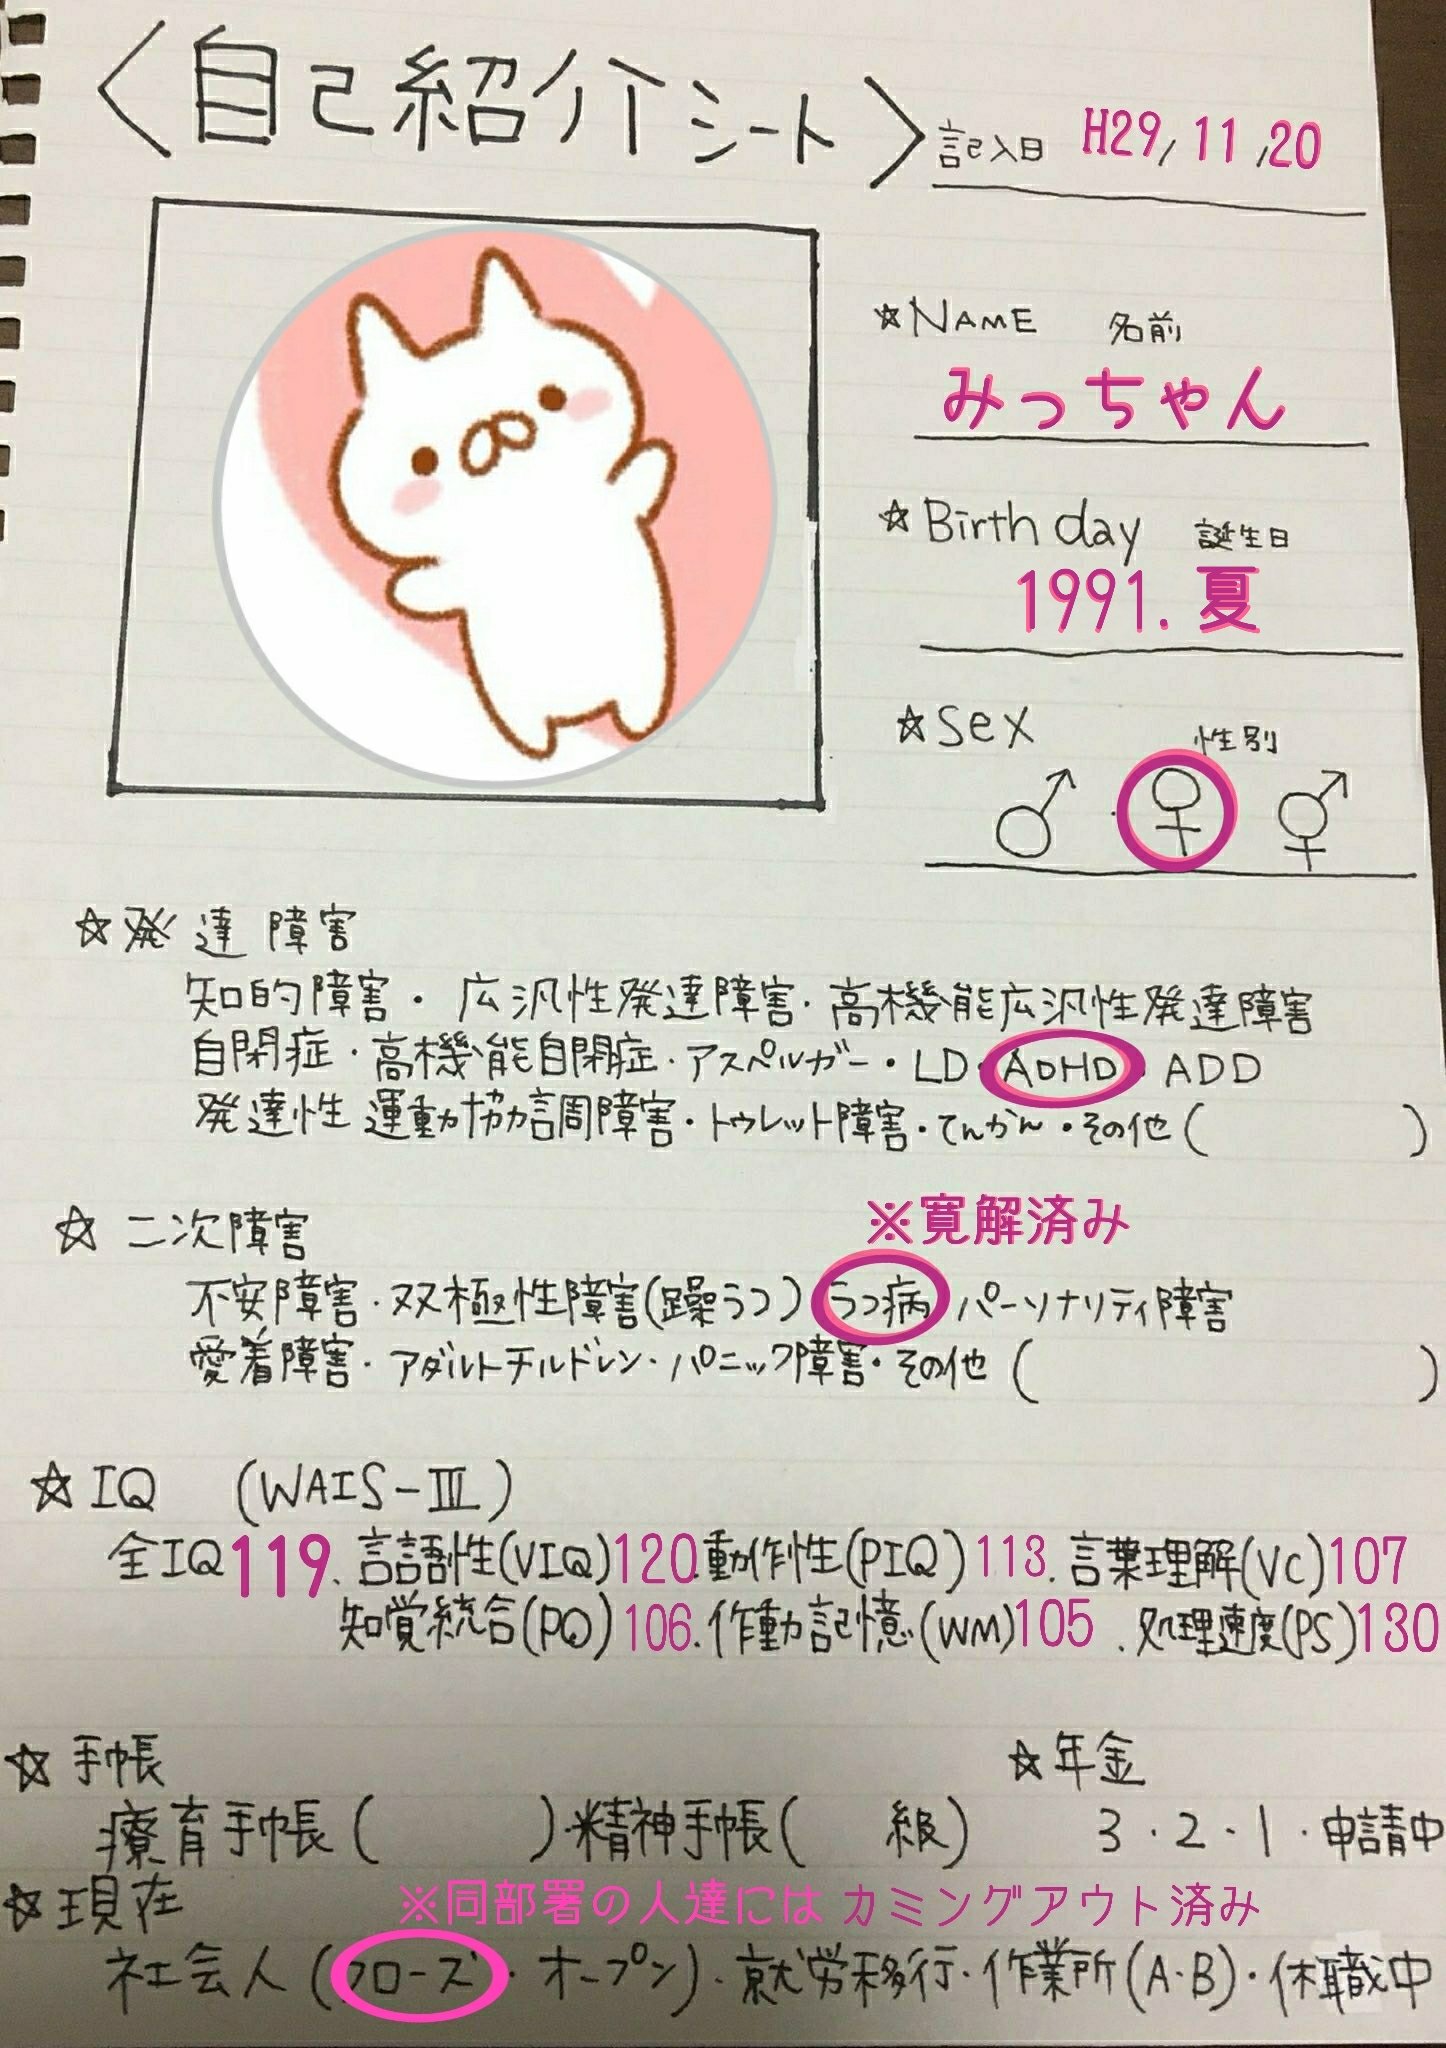 〈自己紹介シート〉
記入日 H29/11/20
☆NAME 名前
みっちゃん
☆Birth day 誕生日
1991.夏
☆Sex 性別
♂・♀ ⚥
☆発達障害
知的障害・広汎性発達障害・高機能広汎性発達障害
自閉症・高機能自閉症・アスペルガー・LD・ADHD・ADD
発達性運動協調障害・トゥレット障害・てんかん・その他( )
☆二次障害
※寛解済み
不安障害・双極性障害(躁うつ)うつ病 パーソナリティ障害
愛着障害・アダルトチルドレン・パニック障害・その他( )
☆IQ (WAIS-Ⅲ)
全IQ119.言語性(VIQ)120.動作性(PIQ)113.言葉理解(VC)107
知覚統合(PO)106.作動記憶(WM)105.処理速度(PS)130
☆手帳
療育手帳( )・精神手帳( 級)
☆年金
3・2・1・申請中
☆現在
※同部署の人達には カミングアウト済み
社会人(クローズ・オープン)・就労移行・作業所(A・B)・休職中